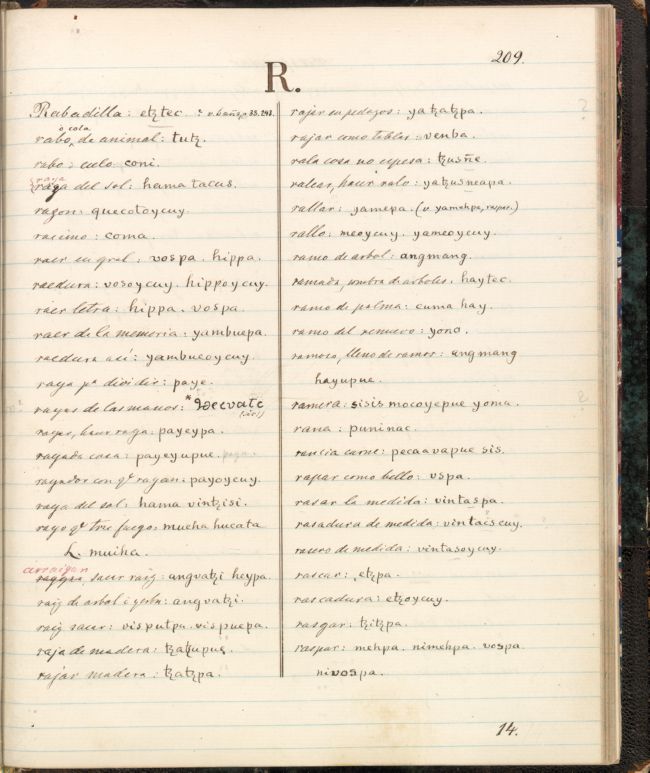 209.
R.
Rabadilla: etztec. ? v. bañep. 33. 243.
ò cola
rabo, de animal: tutz.
rabo: culo: coni.
raya
raya del sol: hama tacus.
razon: quecotoycuy.
racimo: coma.
raer en gral: vospa. hippa.
raedura: vosoycuy. hippoycuy.
raer letra: hippa. vospa.
raer de la memoria: yambuepa.
raedura asi: yambueoycuy.
raya pa. dividir: paye.
rayas de las manos: *
(sic!)
rayar, hacer raya: payeypa.
rayada cosa: payeyupue.
rayador con qe. rayan: payoycuy.
raya del sol: hama vintzisi.
rayo qe. trae fuego: mueha hucata
L. muiha.
arraigar
sacar raiz: angvatzi heypa.
raiz de arbol i yerba: angvatzi.
raiz sacar: visputpa. vispuepa.
raja de madera: tzatzupue.
rajar madera: tzatzpa.
rajar en pedazos: yatzatzpa.
rajar como tablas: venba.
rala cosa no espesa: tzusñe.
ralear, hacer ralo: yatzusneapa.
rallar: yamepa. (v. yamehpa, raspar.)
rallo: meoycuy. yameoycuy.
ramo de arbol: angmang.
ramada, umbra de arboles: haytec.
ramo de palma: cuma hay.
ramo del renuevo: yono.
ramoso, lleno de ramos: angmang
hayupue.
ramera: sisis mocoyepue yomo.
rana: puninac.
rancia carne: pecaavapue sis.
rapar como bello: vspa.
rasar la medida: vintaspa.
rasadura de medida: vintacscuy.
rasero de medida: vintasoycuy.
rascar: etzpa.
rascadura: etzoycuy.
rasgar: tzitzpa.
raspar: mehpa. nimehpa. vospa.
nivospa.
14.